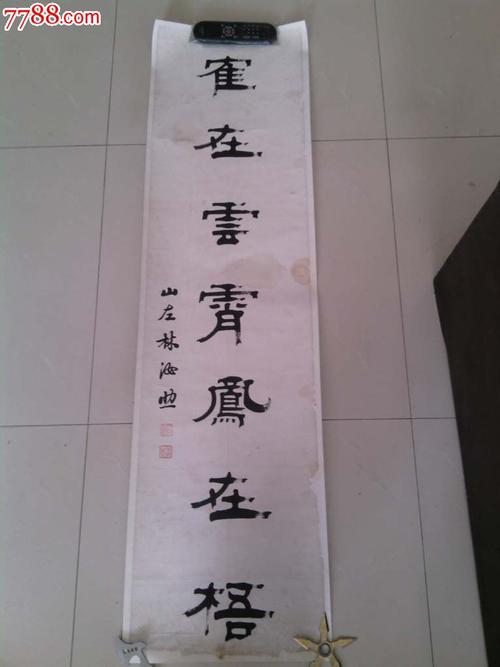 7788.com
寉在雲霄鳳在梧
山左林海